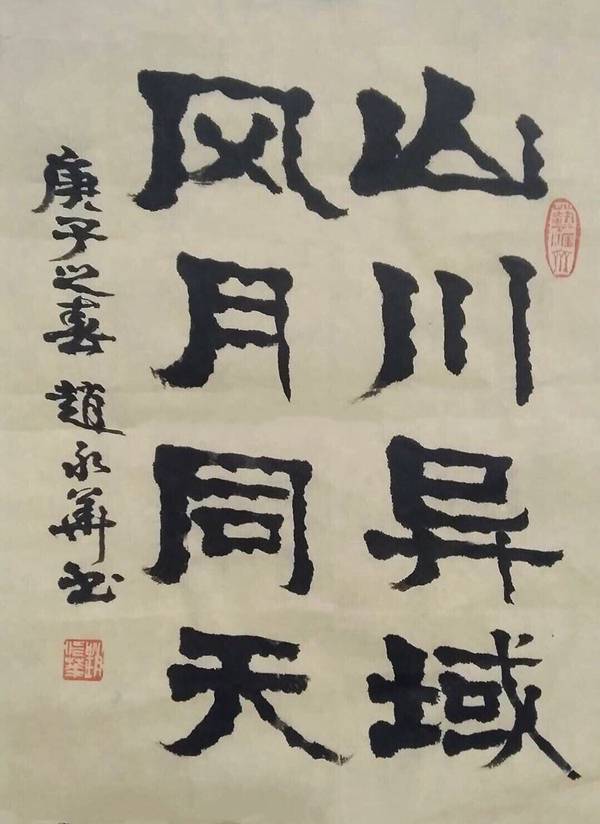 山川异域
风月同天
庚子之春 趙永華书